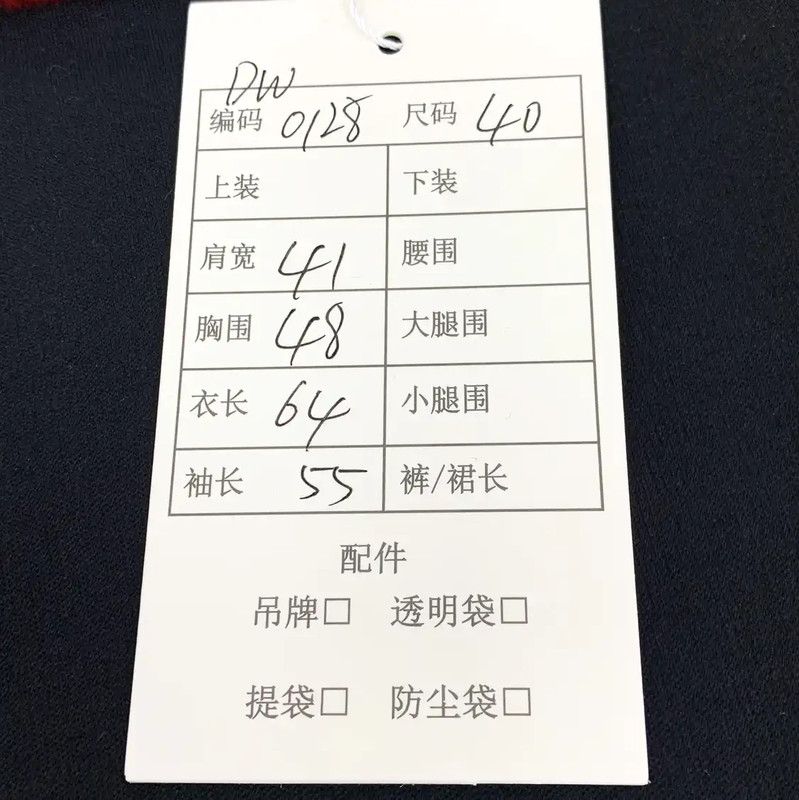 DW
编码 0128 尺码 40
上装 下装
肩宽 41 腰围
胸围 48 大腿围
衣长 64 小腿围
袖长 55 裤/裙长
配件
吊牌□ 透明袋□
提袋□ 防尘袋□